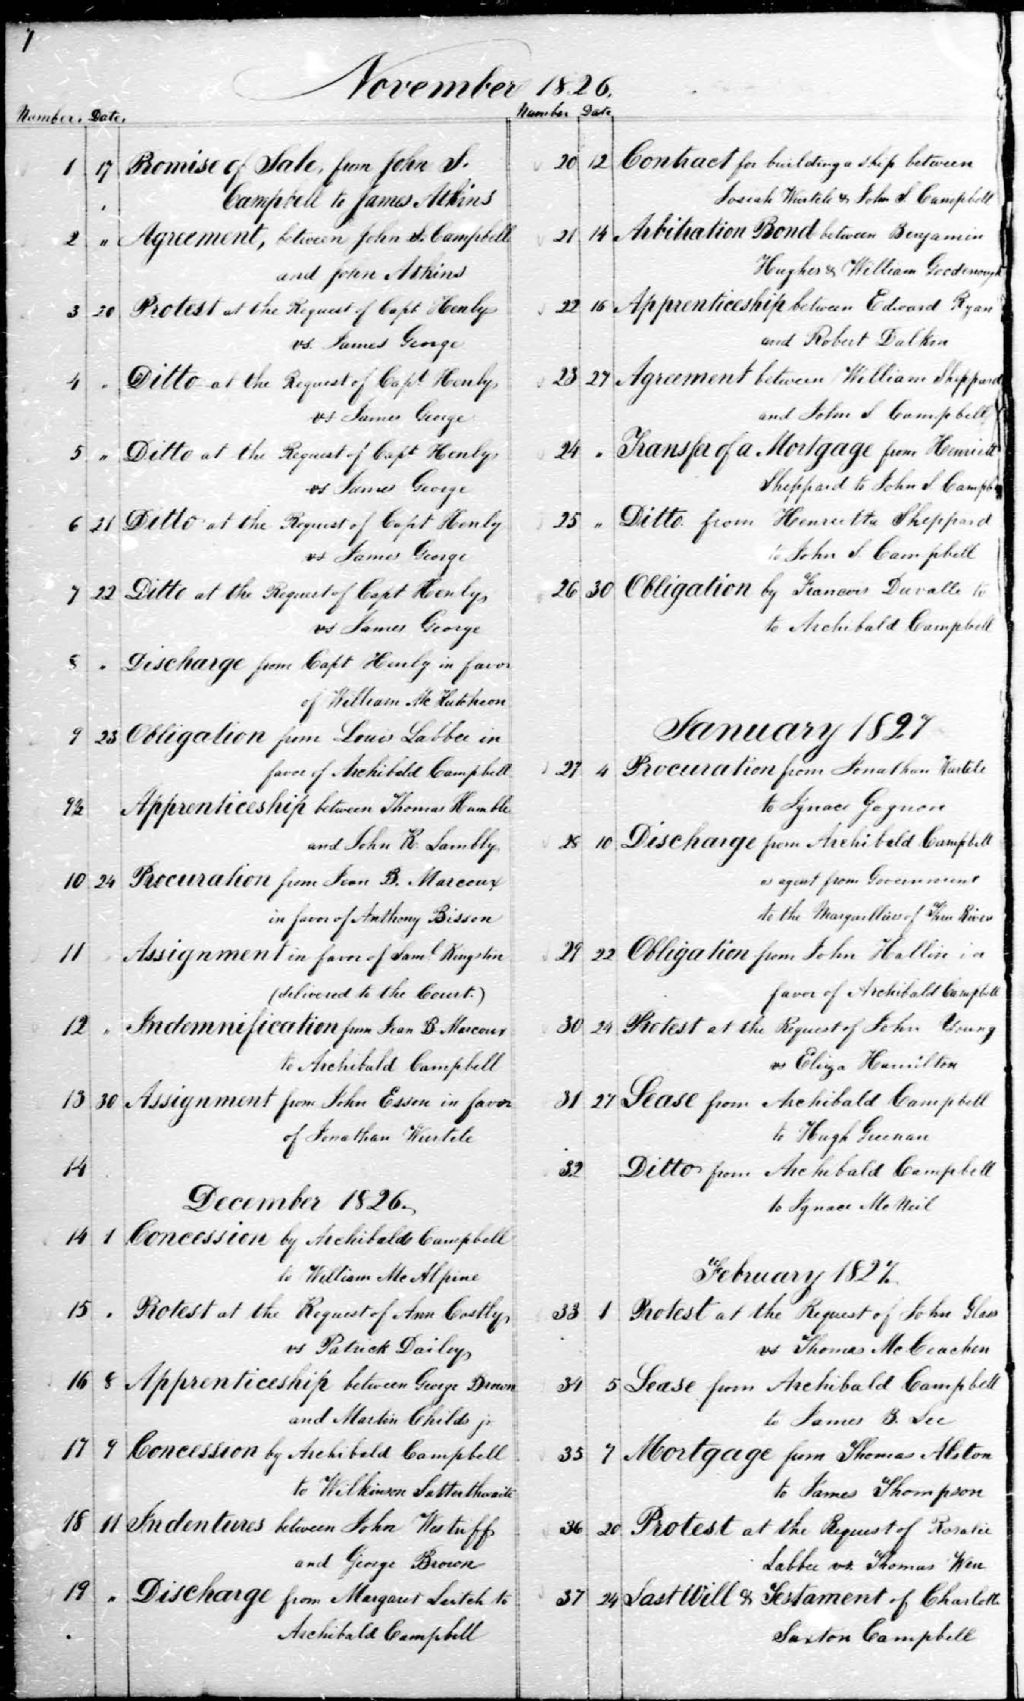 1
November 1826.
Number. Date.
1 17 Promise of Sale, from John S.
Campbell to James Atkins
2 " Agreement, between John S. Campbell
and John Atkins
3 20 Protest at the Request of Capt Henly
vs. James George
4 " Ditto at the Request of Capt Henly
vs James George
5 " Ditto at the Request of Capt Henly
vs James George
6 21 Ditto at the Request of Capt Henly
vs James George
7 22 Ditto at the Request of Capt Henly
vs James George
8 " Discharge from Capt Henly in favor
of William McHutcheon
9 23 Obligation from Louis Labbee in
favor of Archibald Campbell
9½ Apprenticeship between Thomas Humble
and John R. Lambly
10 24 Procuration from Jean B. Marcoux
in favor of Anthony Bisson
11 Assignment in favor of Saml Kingston
(delivered to the Court.)
12 " Indemnification from Jean B Marcoux
to Archibald Campbell
13 30 Assignment from John Esson in favor
of Jonathan Wurtele
14
December 1826.
14 1 Concession by Archibald Campbell
to William McAlpine
15 " Protest at the Request of Ann Costly
vs Patrick Dailey
16 8 Apprenticeship between George Brown
and Martin Childs jr
17 9 Concession by Archibald Campbell
to Wilkinson Satterthwaite
18 11 Indentures between John Westuff
and George Brown
19 " Discharge from Margaret Leitch to
Archibald Campbell
Number Date
20 12 Contract for building a ship between
Josiah Wurtele & John S Campbell
21 14 Arbitration Bond between Benjamin
Hughes & William Goodenough
22 16 Apprenticeship between Edward Ryan
and Robert Dalkin
23 27 Agreement between William Sheppard
and John S Campbell
24 " Transfer of a Mortgage from Henriett
Sheppard to John S Campb
25 " Ditto from Henrietta Sheppard
to John S. Campbell
26 30 Obligation by Francois Duvalle to
to Archibald Campbell
January 1827
27 4 Procuration from Jonathan Wurtele
to Ignace Gagnon
28 10 Discharge from Archibald Campbell
as agent from Government
to the Marguilliers of River
29 22 Obligation from John Hallin in
favor of Archibald Campbell
30 24 Protest at the Request of John Young
vs Eliza Hamilton
31 27 Lease from Archibald Campbell
to Hugh Greenan
32 Ditto from Archibald Campbell
to Ignace McNeil
February 1827.
33 1 Protest at the Request of John Glass
vs Thomas McCeachen
34 5 Lease from Archibald Campbell
to James B. Lee
35 7 Mortgage from Thomas Alston
to James Thompson
36 20 Protest at the Request of Rosalie
Labbee vs. Thomas
37 24 Last Will & Testament of Charlotte
Saxton Campbell